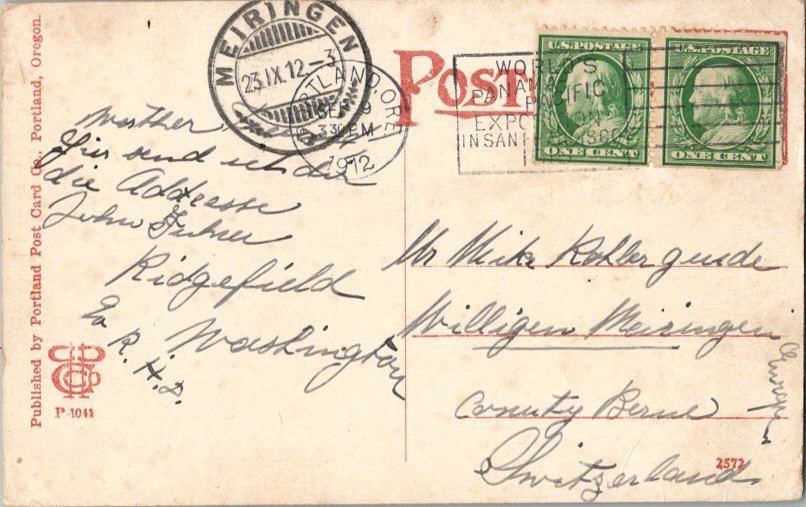 Published by Portland Post Card Co., Portland, Oregon.
P-1041
MEIRINGEN
23.IX.12.-3
PORTLAND, ORE
SEP 9
330 PM
1912
POST
WORLD'S
PANAMA
PACIFIC
EXPO
IN SAN
U.S. POSTAGE
ONE CENT
U.S. POSTAGE
ONE CENT
send ich dir
die Addresse
John
Ridgefield
Washington
R. H. D.
Mr Mike Kohler
Willigen Meiringen
County Berne
Switzerland
2572